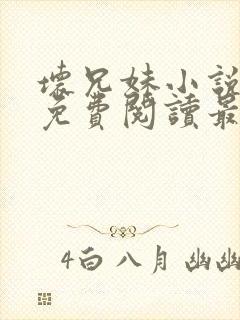 壞兄妹小說
免費閱讀最
4白八月幽幽